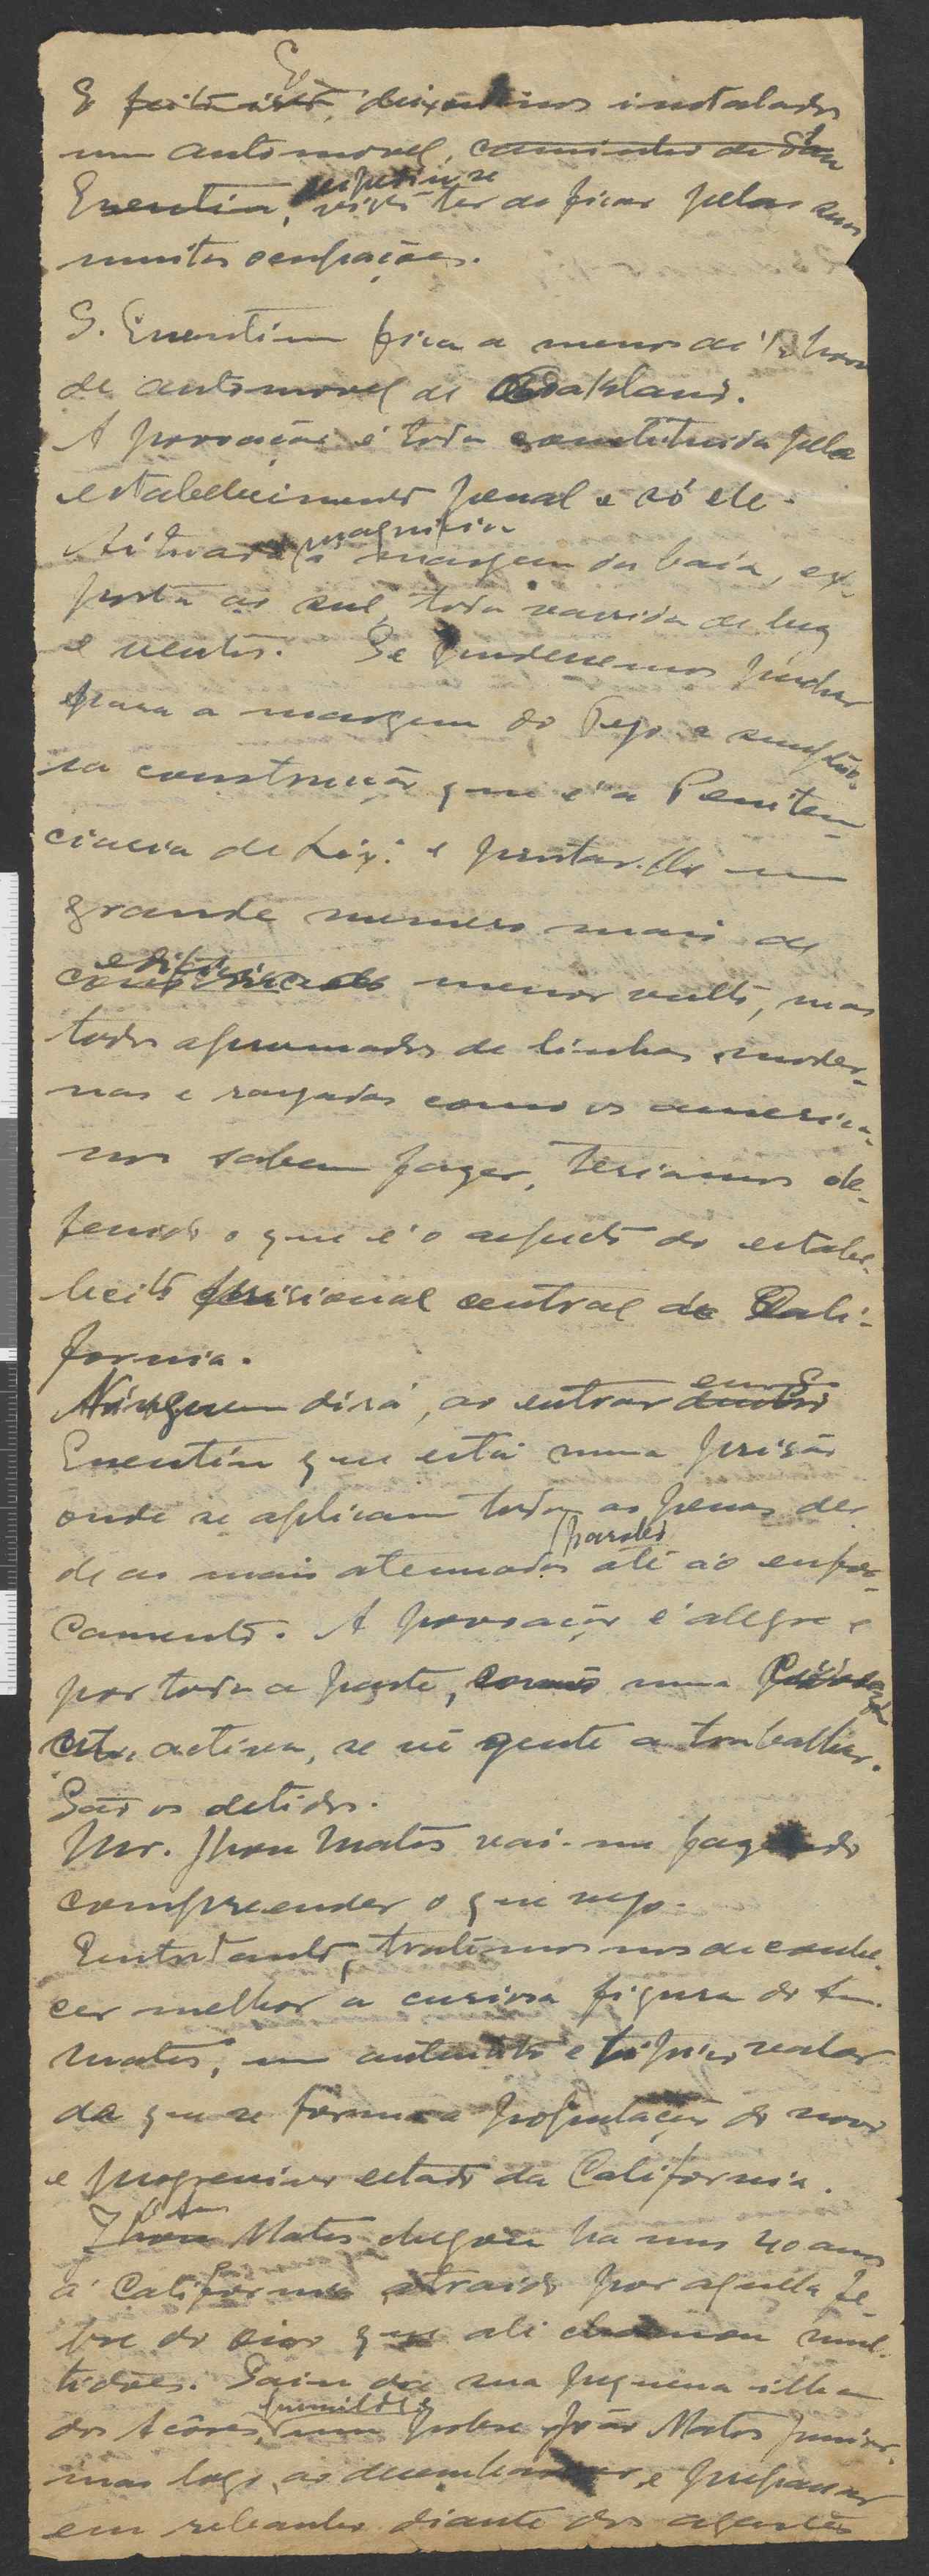 E
E feito isto, deixou-nos instalados
num automovel, caminho de São
Quentin,
despediu-se
visto ter de ficar pelas suas
muitas ocupações.
S. Quentim fica a menos de 1/2 hora
de automovel de Oakland.
A povoação é toda constituida pelo
estabelecimento penal e só ele.
magnifica
Situada á margem da baía, ex-
posta ao sul, toda varrida de luz
e ventos. Se pudessemos
para a margem do Tejo a sumptuo-
sa construção que é a Peniten-
ciaria de Lix.ª e juntar-lhe um
grande numero mais de
edificios de
menor vulto, mas
todos aprumados de linhas moder-
nas e rasgadas como os america-
nos sabem fazer, teriamos de-
finido o que é o aspecto do estabe-
lecitº prisional central da Cali-
fornia.
em S.
Ninguem dirá, ao entrar dentro
Quentin que está numa prisão
onde se aplicam todas as penas des-
parole
de as mais atenuadas até ao enfor-
camento. A povoação é alegre e
por toda a parte, como numa
activa, se vê gente a trabalhar.
São os detidos.
Mr. Jhon Matos vai-me fazendo
compreender o que vejo.
Entretanto, tratemos nos de conhe-
cer melhor a curiosa figura do
Matos, um autentico e tipico valor
de que se forma a população do novo
e progressivo estado da California.
Jhon Matos chegou ha uns 40 anos
á California atraido por aquela fe-
bre do oiro que ali chamou mul-
tidões. Saiu da sua pequena ilha
humilde e
dos Açores, um pobre João Matos Junior,
mas logo ao desembarcar, e preparar
em
diante dos agentes